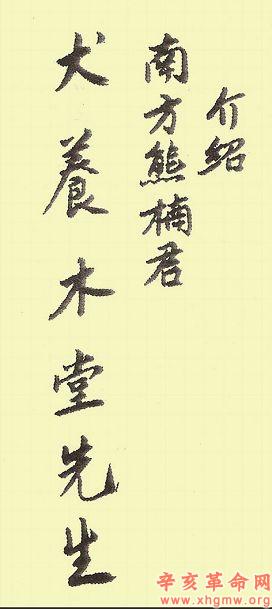 介紹
南方熊楠君
犬養木堂先生
辛亥革命网
www.xhgmw.org